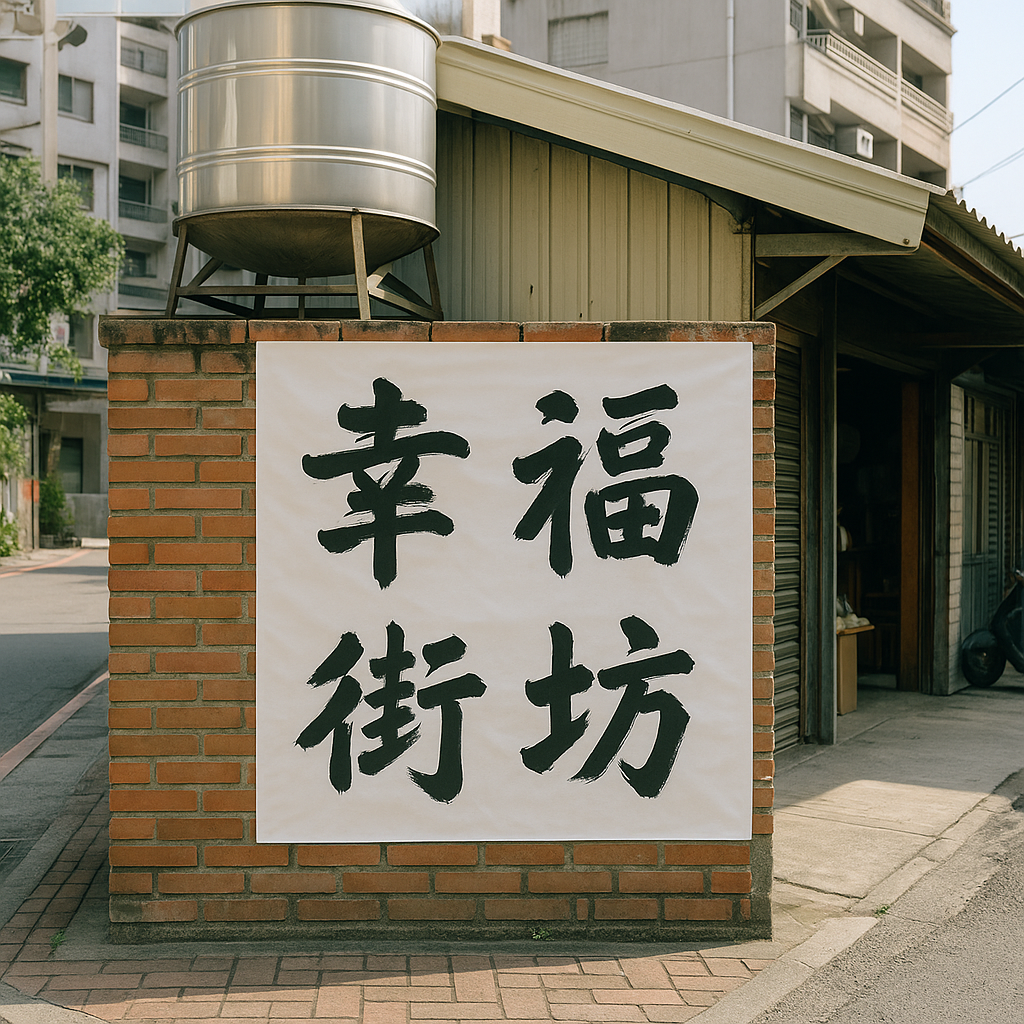 幸福
街坊